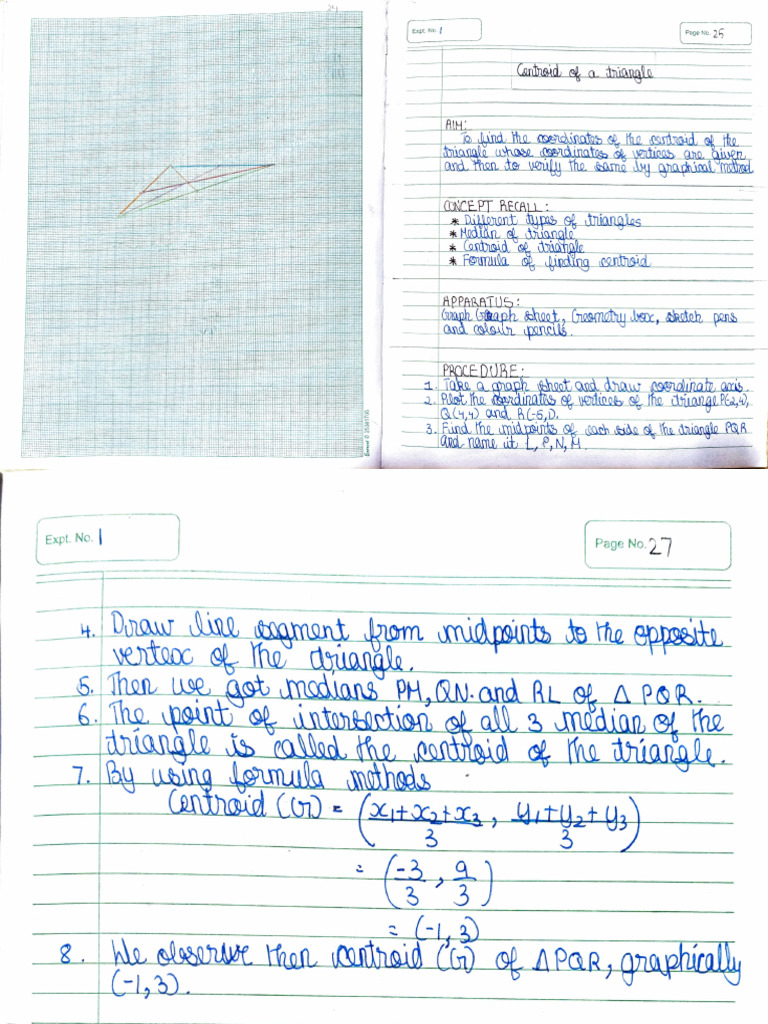 24
Expt. No. 1
Page No. 25
Centroid of a triangle
AIM:
To find the coordinates of the centroid of the
triangle whose coordinates of vertices are given
and then to verify the same by graphical method
CONCEPT RECALL:
* Different types of triangles
* Median of triangle
* Centroid of triangle
* Formula of finding centroid
APPARATUS:
Graph Graph sheet, Geometry box, sketch pens
and colour pencils.
PROCEDURE:
1. Take a graph sheet and draw coordinate axis.
2. Plot the coordinates of vertices of the triange P(-2,4),
Q(4,4) and R(-5,1).
3. Find the midpoints of each side of the triangle PQR
and name it L, P, N, M.
Expt. No. 1
Page No. 27
4. Draw line segment from midpoints to the opposite
vertex of the triangle.
5. Then we got medians PM, QN. and RL of Δ PQR.
6. The point of intersection of all 3 median of the
triangle is called the centroid of the triangle.
7. By using formula methods
Centroid (G) = (x1+x2+x3/3, y1+y2+y3/3)
= (-3/3, 9/3)
= (-1,3)
8. We observe then centroid (G) of ΔPQR, graphically
(-1,3).